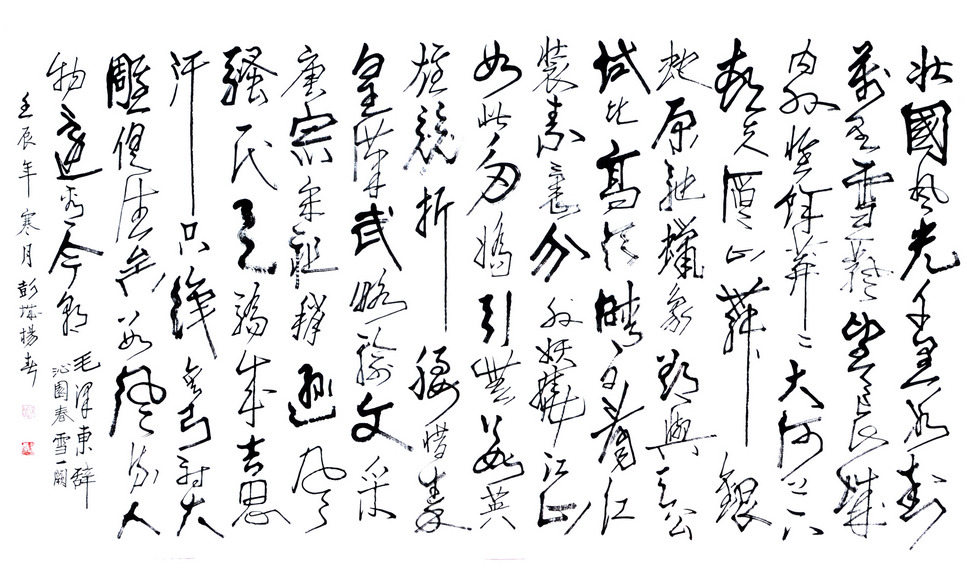 北國風光千里冰封
萬里雪飄望長城
内外惟餘莽々大河上下
頓失滔山舞銀
蛇原馳蠟象欲與天公
試比高須晴日看红
裝素裹分外妖嬈江山
如此多嬌引無數英
雄競折腰惜秦
皇漢武略輸文采
唐宗宋祖稍遜風
騷一代天驕成吉思
汗只識彎弓射大
雕俱往矣數風流人
物還看今朝
毛澤東辭
沁園春雪一闋
壬辰年寒月彭城楊春